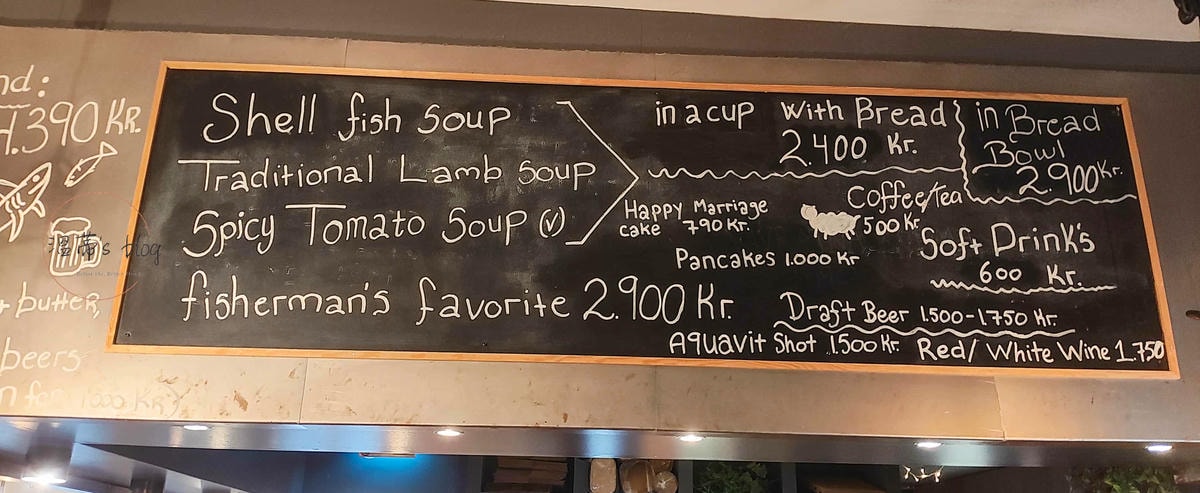 nd:
4.390 KR.
+ butter,
beers
n for (1000 KR)
's blog
Shell fish Soup
Traditional Lamb Soup
Spicy Tomato Soup (V)
fisherman's favorite 2.900 Kr.
in a cup With Bread
2.400 Kr.
in Bread
Bowl
2.900 Kr.
Happy Marriage
cake 790 Kr.
Coffee/Tea
500 Kr.
Pancakes 1.000 Kr
Soft Drink's
600 Kr.
Draft Beer 1.500-1.750 Kr.
Aquavit Shot 1.500 Kr. Red/White Wine 1.750